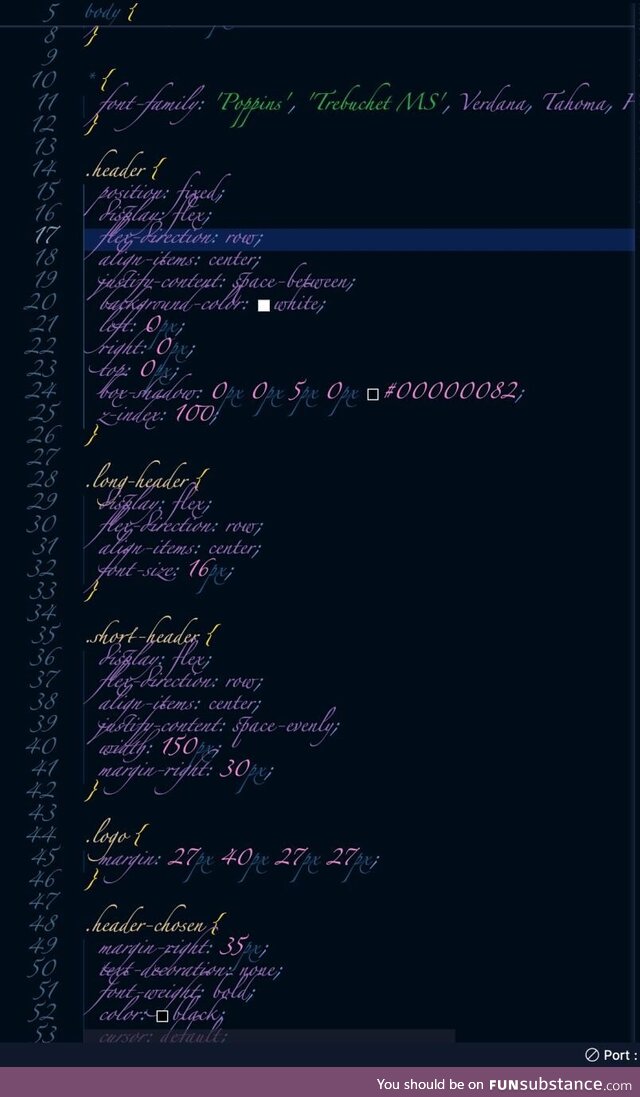 5 body {
8 }
9
10 * {
11 font-family: 'Poppins', 'Trebuchet MS', Verdana, Tahoma,
12 }
13
14 .header {
15 position: fixed;
16 display: flex;
17 flex-direction: row;
18 align-items: center;
19 justify-content: space-between;
20 background-color: white;
21 left: 0px;
22 right: 0px;
23 top: 0px;
24 box-shadow: 0px 0px 5px 0px #00000082;
25 z-index: 100;
26 }
27
28 .long-header {
29 display: flex;
30 flex-direction: row;
31 align-items: center;
32 font-size: 16px;
33 }
34
35 .short-header {
36 display: flex;
37 flex-direction: row;
38 align-items: center;
39 justify-content: space-evenly;
40 width: 150px;
41 margin-right: 30px;
42 }
43
44 .logo {
45 margin: 27px 40px 27px 27px;
46 }
47
48 .header-chosen {
49 margin-right: 35px;
50 text-decoration: none;
51 font-weight: bold;
52 color: black;
53 cursor: default;
Port :
You should be on FUNsubstance.com